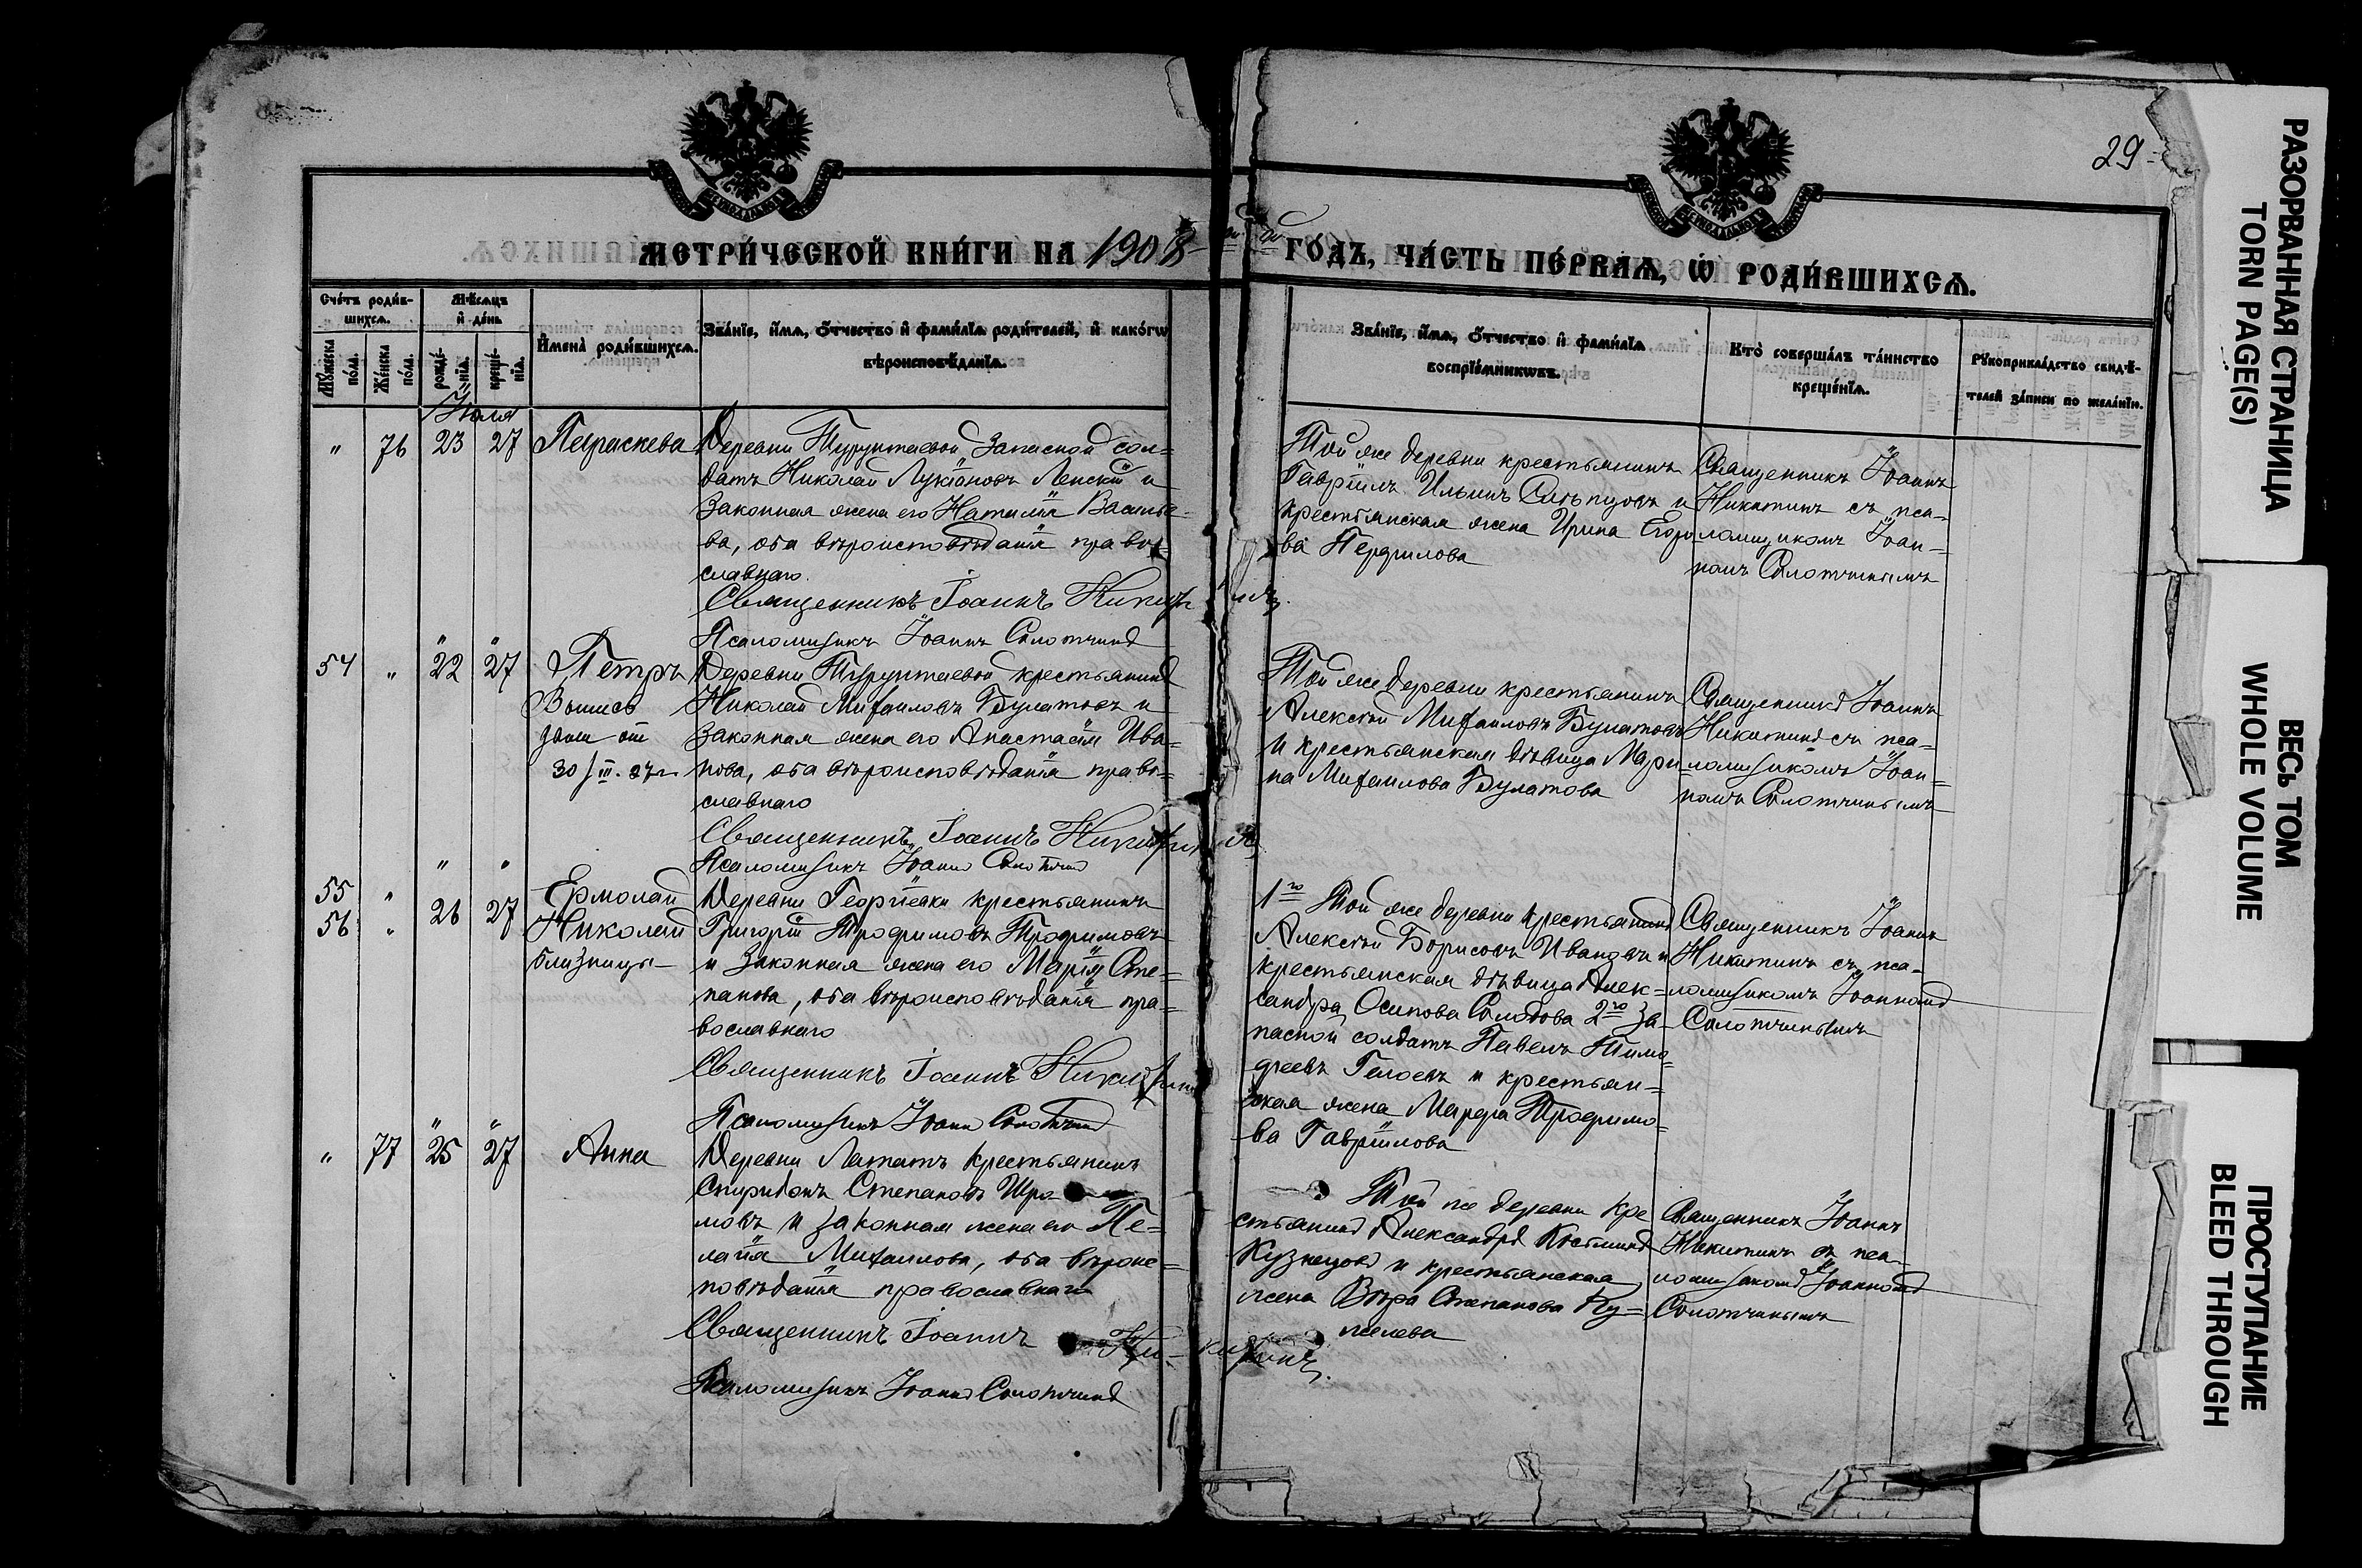 29
МЕТРИ́ЧЕСКОЙ КНИ́ГИ НА 1908 ГО́ДЪ, ЧА́СТЬ ПЕ́РВАѦ, Ѡ҆ РОДИ́ВШИХСѦ.
Сче́тъ роди́в-
шихсѧ.
Мѣ́сѧцъ
и҆ де́нь
Мꙋ́жеска
по́ла.
Же́нска
по́ла.
рожде́-
нїѧ.
креще́-
нїѧ.
И҆мена̀ роди́вшихсѧ.
Зва́нїе, и҆́мѧ, ѻ҆́тчество и҆ фами́лїѧ роди́телей, и҆ како́гѡ
вѣроисповѣ́данїѧ.
Зва́нїе, и҆́мѧ, ѻ҆́тчество и҆ фами́лїѧ
воспрїе́мникѡвъ.
Кто̀ соверша́лъ та́инство
креще́нїѧ.
Рꙋкоприкла́дство свидѣ́-
телей за́писи по жела́нїю.
Июля
" 76 23 27 Параскева
Деревни Турунтаевой запасной сол-
датъ Николай Лукіановъ Ленскій и
законная жена его Наталія Василье-
ва, оба вѣроисповѣданія право-
славнаго.
Священникъ Іоаннъ Никитинъ.
Псаломщикъ Іоаннъ Солотчинъ
Той же деревни крестьянинъ
Гавріилъ Ильинъ Слѣпцовъ и
крестьянская жена Ирина Егоро-
ва Перфилова
Священникъ Іоаннъ
Никитинъ съ пса-
ломщикомъ Іоан-
номъ Солотчинымъ
54 " 22 27 Петръ
30/III.
Деревни Турунтаевой крестьянинъ
Николай Михаиловъ Булатовъ и
законная жена его Анастасія Ива-
нова, оба вѣроисповѣданія право-
славнаго
Священникъ Іоаннъ Никитинъ
Псаломщикъ Іоаннъ Солотчинъ
Той же деревни крестьянинъ
Алексѣй Михаиловъ Булатовъ
и крестьянская дѣвица Мари-
на Михаилова Булатова
Священникъ Іоаннъ
Никитинъ съ пса-
ломщикомъ Іоан-
номъ Солотчинымъ
55 " Ермолай
56 " 26 27 Николай
близнецы
Деревни Георгіевки крестьянинъ
Григорій Трофимовъ Трофимовъ
и законная жена его Марія Сте-
панова, оба вѣроисповѣданія пра-
вославнаго
Священникъ Іоаннъ Никитинъ
Псаломщикъ Іоаннъ Солотчинъ
1го Той же деревни крестьянинъ
Алексѣй Борисовъ Ивановъ и
крестьянская дѣвица Алек-
сандра Осипова 2го За-
пасной солдатъ Павелъ Тимо-
феевъ и крестьян-
ская жена Марфа Трофимо-
ва Гавріилова
Священникъ Іоаннъ
Никитинъ съ пса-
ломщикомъ Іоанномъ
Солотчинымъ
" 77 25 27 Анна
Деревни Лататъ крестьянинъ
Спиридонъ Степановъ
и законная жена его Пе-
лагія Михаилова, оба вѣроис-
повѣданія православнаго
Священникъ Іоаннъ Никитинъ.
Псаломщикъ Іоаннъ Солотчинъ
Той же деревни кре-
стьянинъ Александръ Косминъ
Кузнецовъ и крестьянская
жена Вѣра Степанова
Священникъ Іоаннъ
Никитинъ съ пса-
ломщикомъ Іоанномъ
Солотчинымъ
РАЗОРВАННАЯ СТРАНИЦА
TORN PAGE(S)
ВЕСЬ ТОМ
WHOLE VOLUME
ПРОСТУПАНИЕ
BLEED THROUGH